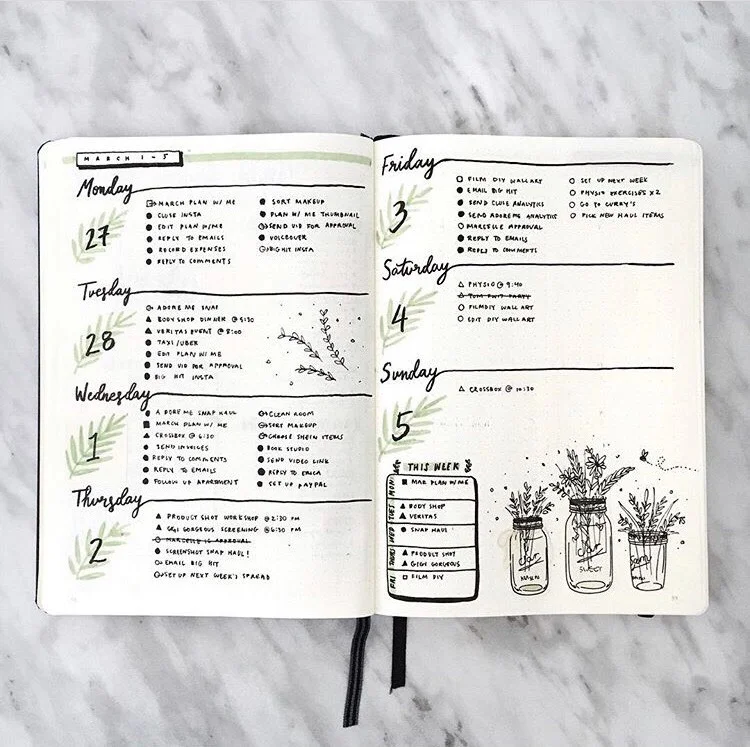 MARCH 1-5
Monday
27
MARCH PLAN W/ ME
CLUSE INSTA
EDIT PLAN W/ME
REPLY TO EMAILS
RECORD EXPENSES
REPLY TO COMMENTS
SORT MAKEUP
PLAN W/ ME THUMBNAIL
SEND VID FOR APPROVAL
VOICEOVER
BIG HIT INSTA
Tuesday
28
ADORE ME SNAP
BODY SHOP DINNER @ 5:30
VERITAS EVENT @ 8:00
TAXI/UBER
EDIT PLAN W/ ME
SEND VID FOR APPROVAL
BIG HIT INSTA
Wednesday
1
ADORE ME SNAP HAUL
MARCH PLAN W/ ME
CROSSBOX @ 6:30
SEND INVOICES
REPLY TO COMMENTS
REPLY TO EMAILS
FOLLOW UP APARTMENT
CLEAN ROOM
SORT MAKEUP
CHOOSE SHEIN ITEMS
BOOK STUDIO
SEND VIDEO LINK
REPLY TO ERICA
SET UP PAYPAL
Thursday
2
PRODUCT SHOT WORKSHOP @ 2:30 PM
GIGI GORGEOUS SCREENING @ 6:30 PM
MARCELLE IG APPROVAL
SCREENSHOT SNAP HAUL!
EMAIL BIG HIT
SET UP NEXT WEEK'S SPREAD
Friday
3
FILM DIY WALL ART
EMAIL BIG HIT
SEND CLUSE ANALYTICS
SEND ADOREME ANALYTICS
MARCELLE APPROVAL
REPLY TO EMAILS
REPLY TO COMMENTS
SET UP NEXT WEEK
PHYSIO EXERCISES X2
GO TO CURRY'S
PICK NEW HAUL ITEMS
Saturday
4
PHYSIO @ 9:40
PARTY
FILM DIY WALL ART
EDIT DIY WALL ART
Sunday
5
CROSSBOX @ 10:30
THIS WEEK
MON
MAR PLAN W/ME
TUES
BODY SHOP
VERITAS
WED
SNAP HAUL
THURS
PRODUCT SHOT
GIGI GORGEOUS
FRI
FILM DIY
MASON